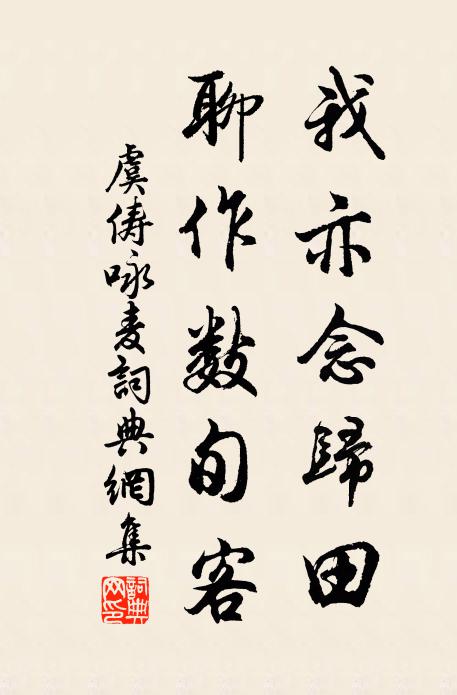 我亦念歸田
聊作數旬客
虞儔咏麦詞典網集
詞典网印